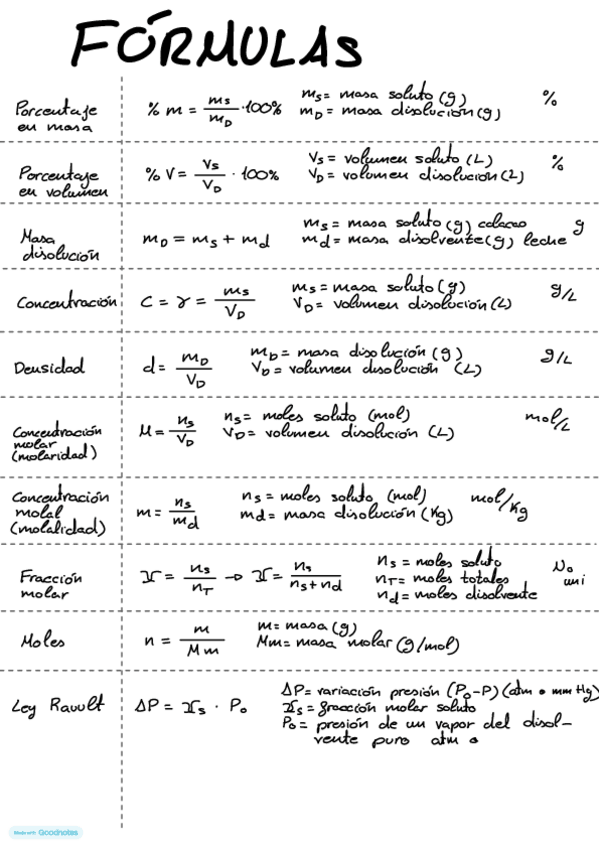 FÓRMULAS
Porcentaje en masa
% m = ms/mD · 100%
ms = masa soluto (g)
mD = masa disolución (g)
%
Porcentaje en volumen
% V = Vs/VD · 100%
Vs = volumen soluto (L)
VD = volumen disolución (L)
%
Masa disolución
mD = ms + md
ms = masa soluto (g) colacao
md = masa disolvente (g) leche
g
Concentración
C = γ = ms/VD
ms = masa soluto (g)
VD = volumen disolución (L)
g/L
Densidad
d = mD/VD
mD = masa disolución (g)
VD = volumen disolución (L)
g/L
Concentración molar (molaridad)
M = ns/VD
ns = moles soluto (mol)
VD = volumen disolución (L)
mol/L
Concentración molal (molalidad)
m = ns/md
ns = moles soluto (mol)
md = masa disolución (Kg)
mol/Kg
Fracción molar
X = ns/nT → X = ns/ns+nd
ns = moles soluto
nT = moles totales
nd = moles disolvente
No uni
Moles
n = m/Mm
m = masa (g)
Mm = masa molar (g/mol)
Ley Raoult
ΔP = Xs · Po
ΔP = variación presión (Po-P) (atm o mmHg)
Xs = fracción molar soluto
Po = presión de un vapor del disol-
vente puro atm o
Made with Goodnotes